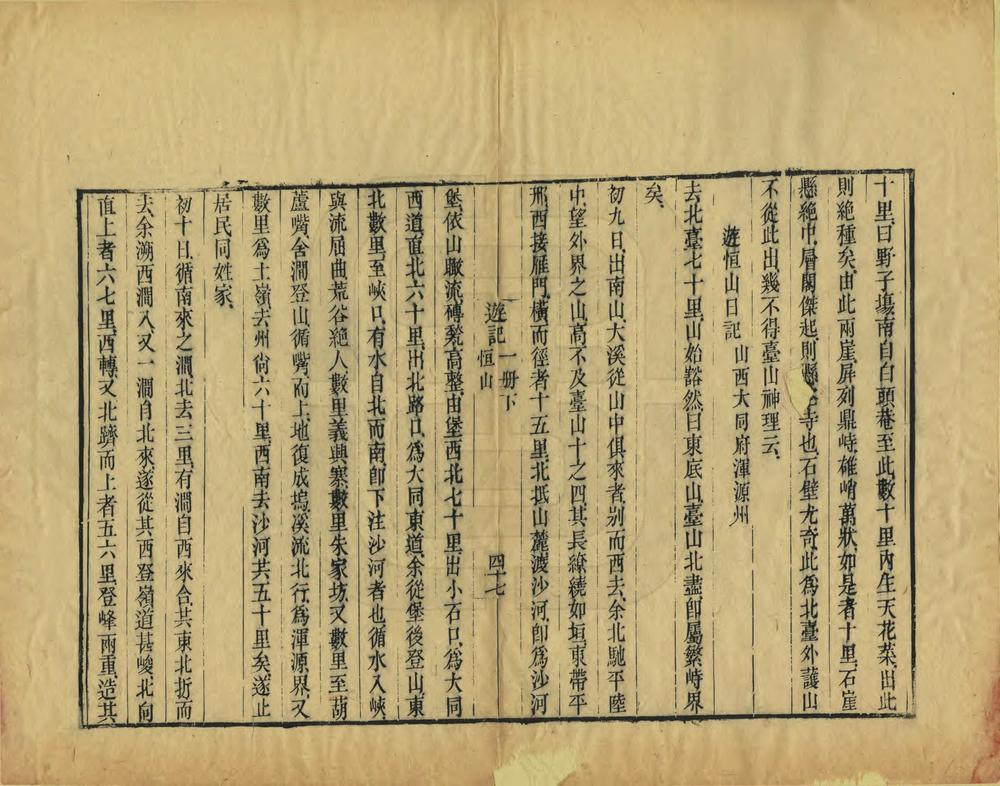 十里、曰野子塲、南自白頭菴至此、數十里內、生天花菜、出此
則絶種矣、由此兩崖屏列鼎峙、雄峭萬狀、如是者十里、石崖
懸絶中、層閣傑起、則懸空寺也、石壁尤奇、此爲北臺外護山、
不從此出、幾不得臺山神理云、
遊恒山日記 山西大同府渾源州
去北臺七十里、山始豁然、曰東底山、臺山北盡、卽屬繁峙界
矣、
初九日、出南山、大溪從山中俱來者、别而西去、余北馳平陸
中、望外界之山、高不及臺山十之四、其長繚繞如垣、東帶平
邢、西接雁門、橫而徑者十五里、北抵山麓、渡沙河、卽爲沙河
遊記 一册下 恒山 四十七
堡、依山瞰流、磚甃高整、由堡西北七十里、出小石口、爲大同
西道、直北六十里、出北路口、爲大同東道、余從堡後登山、東
北數里、至峽口、有水自北而南、卽下注沙河者也、循水入峽、
與流屈曲、荒谷絶人、數里、義興寨、數里、朱家坊、又數里、至葫
蘆嘴、舍澗登山、循嘴而上、地復成塢、溪流北行、爲渾源界、又
數里、爲土嶺、去州尙六十里、西南去沙河、共五十里矣、遂止
居民同姓家、
初十日、循南來之澗、北去三里、有澗自西來合、共東北折而
去、余溯西澗入、又一澗自北來、遂從其西登嶺、道甚峻、北向
直上者六七里、西轉、又北躋而上者五六里、登峰兩重、造其